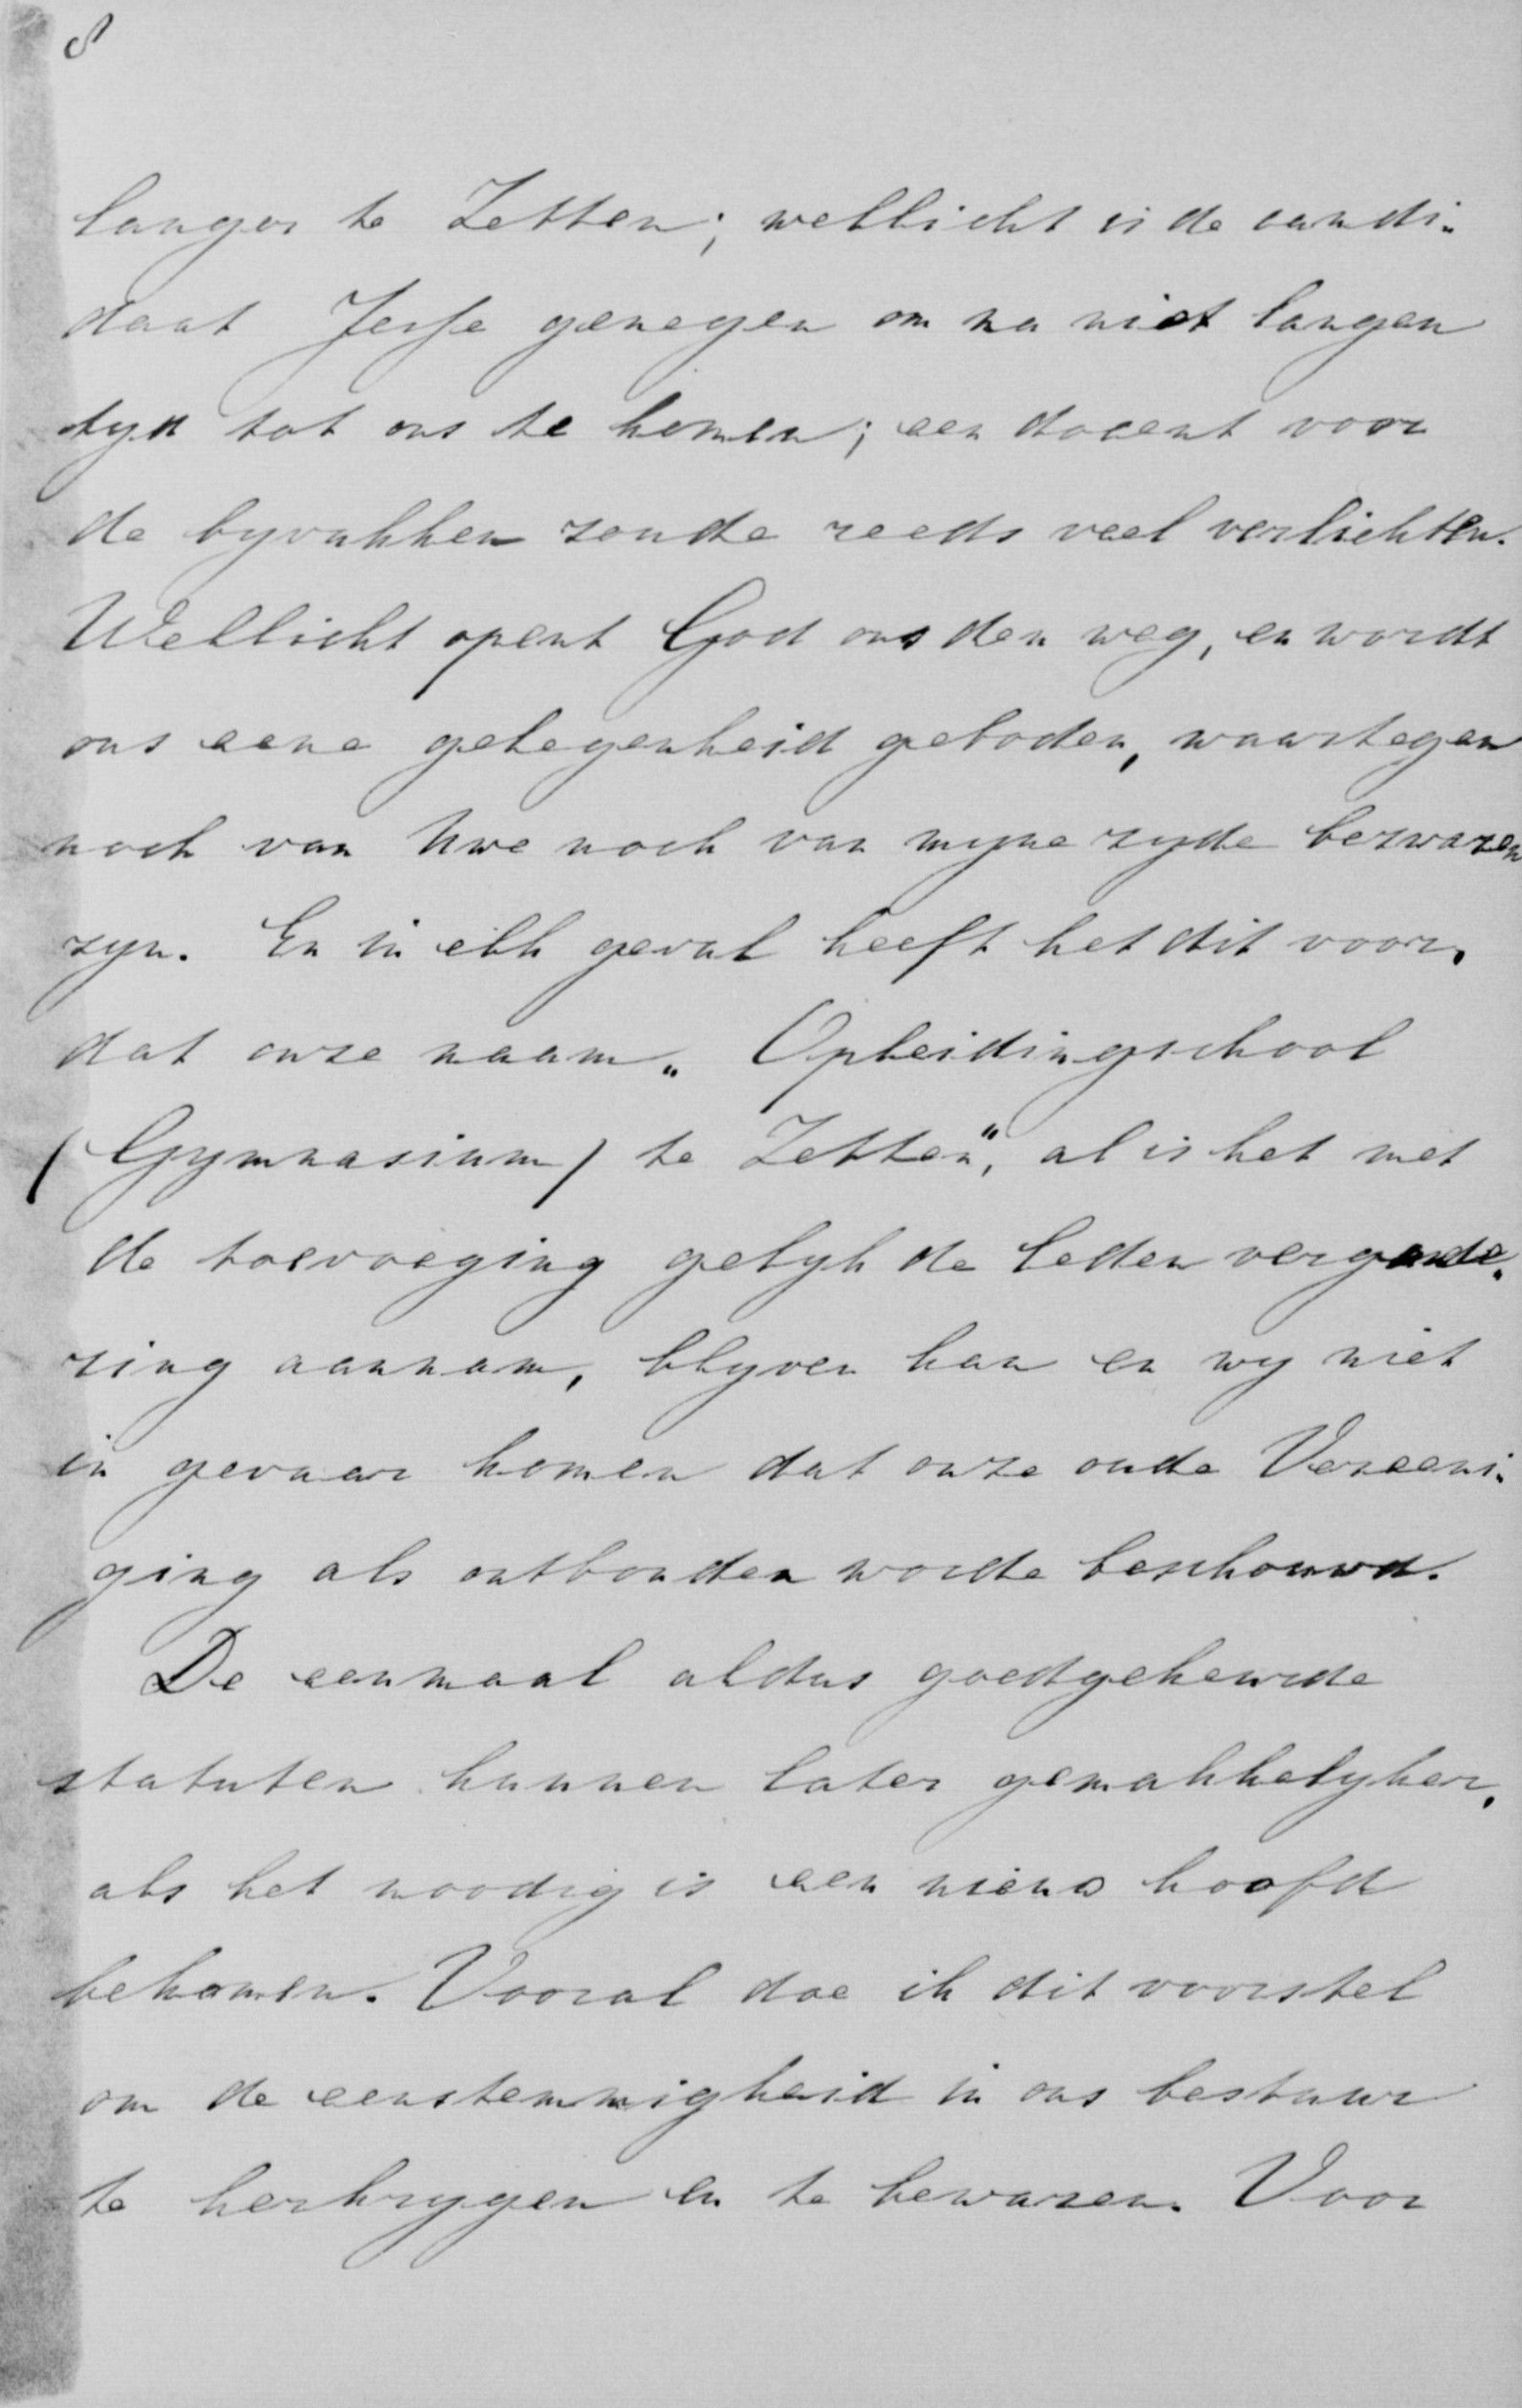 8
langer te Zetten; wellicht is de candi-
daat Jesse genegen om na niet langen
tyd tot ons te komen; een docent voor
de byvakken zoude reeds veel verlichten.
Wellicht opent God ons den weg, en wordt
ons eene gelegenheid geboden, waartegen
noch van Uwe noch van myne zyde bezwaren
zyn. En in elk geval heeft het dit voor,
dat onze naam „Opleidingschool
(Gymnasium) te Zetten", al is het met
de toevoeging gelyk de ledenvergade-
ring aannam, blyven kan en wy niet
in gevaar komen dat onze oude Vereeni-
ging als ontbonden worde beschouwd.
De eenmaal aldus goedgekeurde
statuten kunnen later gemakkelyker,
als het noodig is een nieuw hoofd
bekomen. Vooral doe ik dit voorstel
om de eenstemmigheid in ons bestuur
te herkrygen en te bewaren. Voor